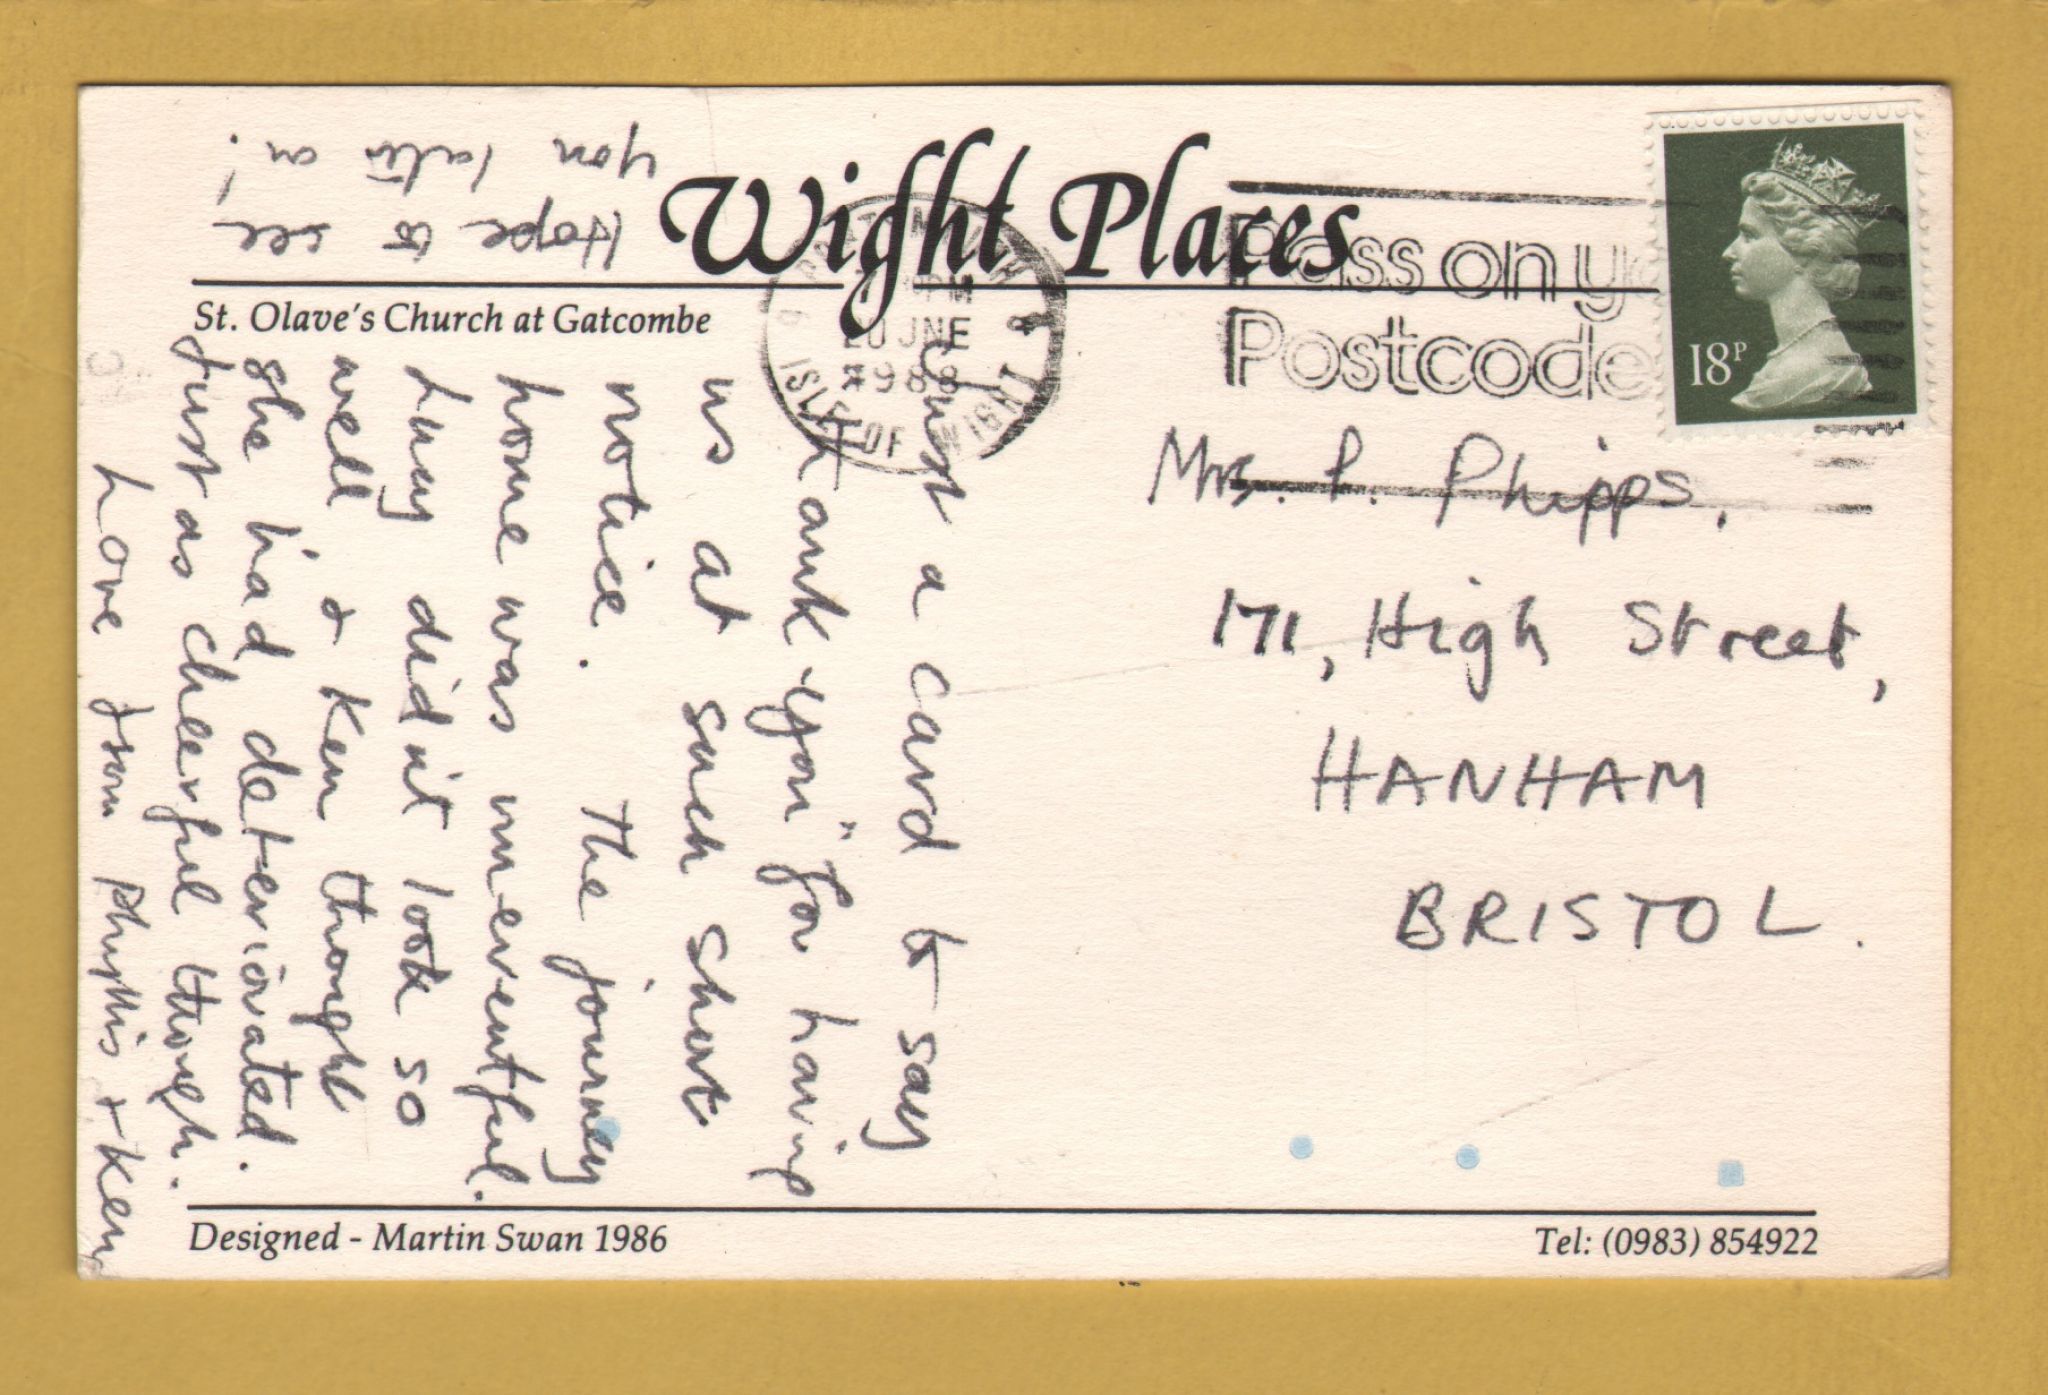 Wight Places
St. Olave's Church at Gatcombe
PORTSMOUTH &
PM
20 JNE
1988
ISLE OF WIGHT
Pass on yo
Postcode
18P
Just a card to say
"thank you" for having
us at such short
notice. The journey
home was uneventful.
Lucy didn't look so
well & Ken thought
she had deteriorated.
Just as cheerful though.
Love from Phyllis & Ken
Hope to see
you later on!
Mrs. P. Phipps,
171, High Street,
HANHAM
BRISTOL.
Designed - Martin Swan 1986
Tel: (0983) 854922